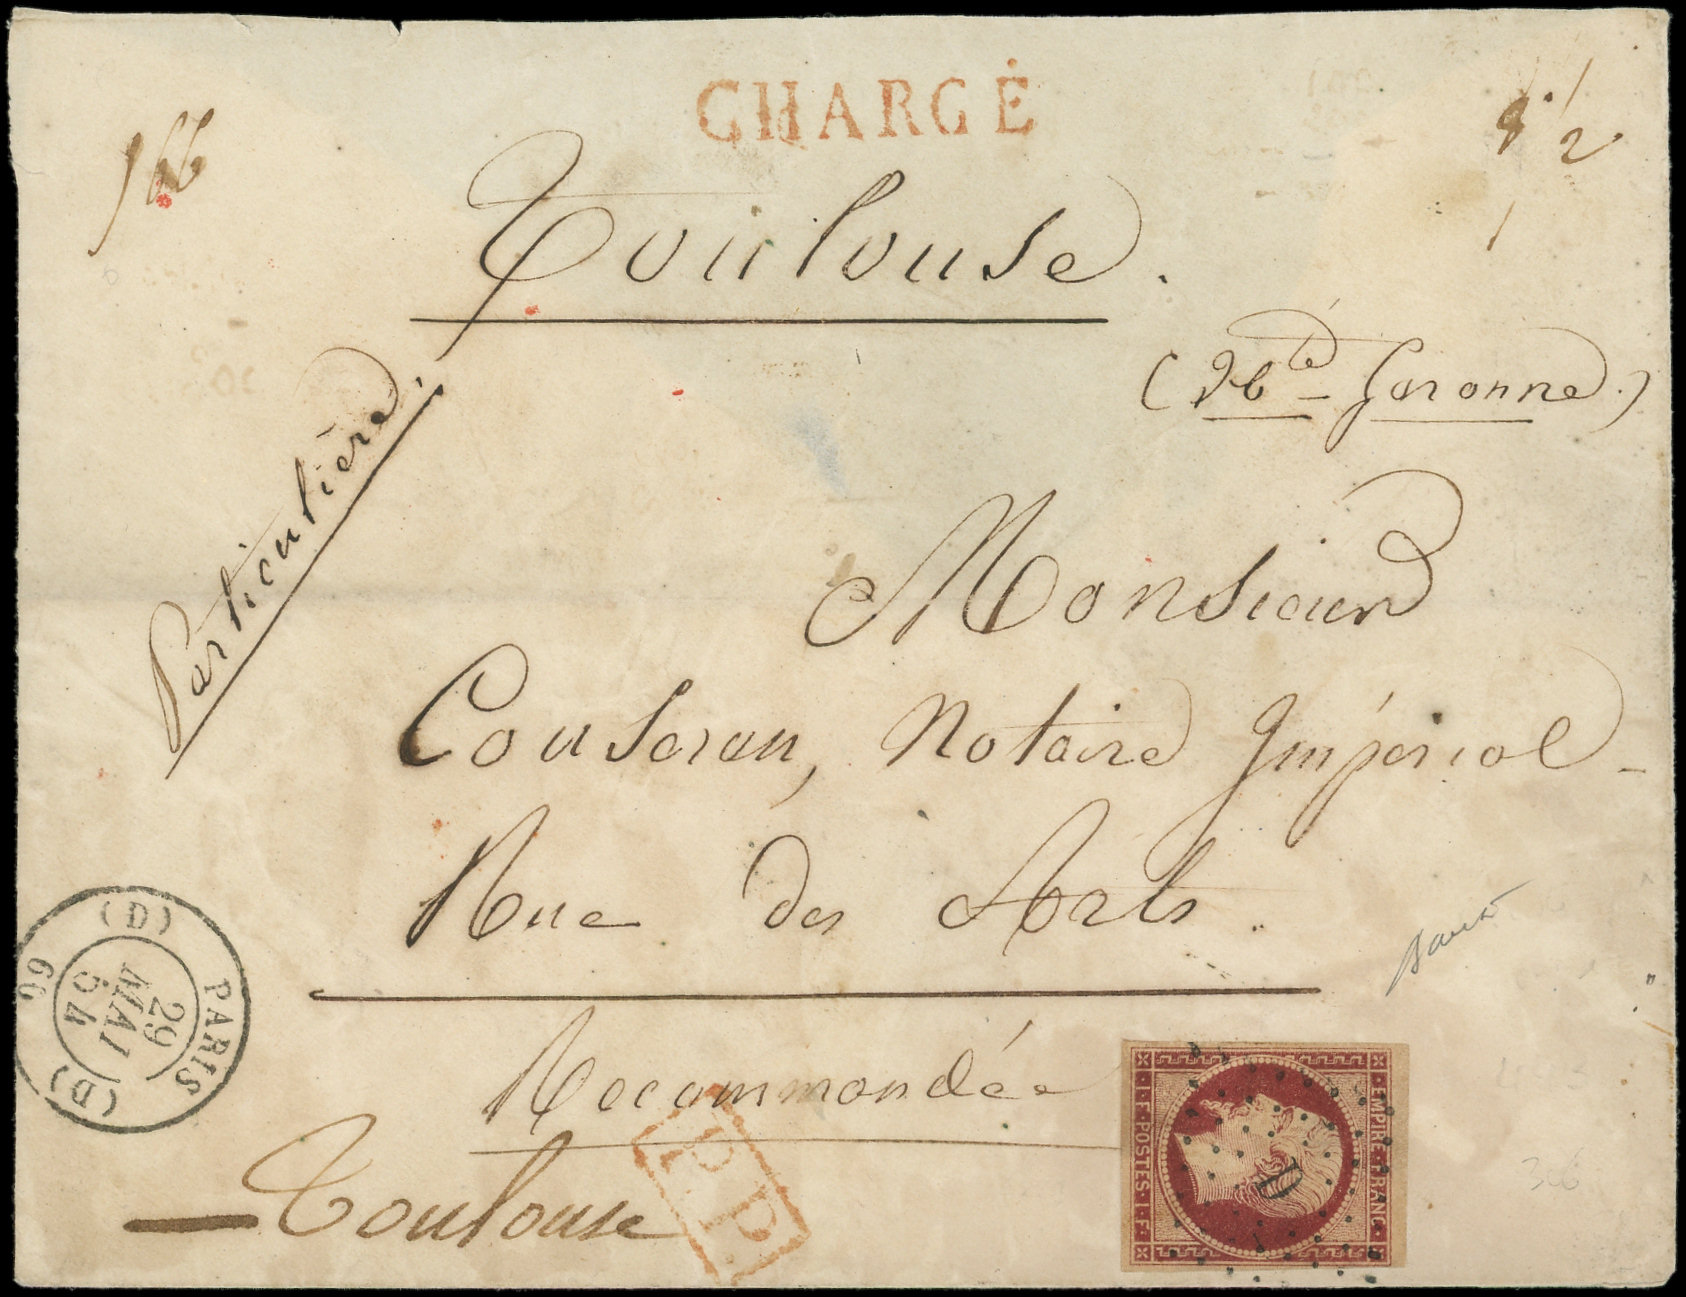 CHARGÉ
166
8 1/2
Toulouse.
(Hte - Garonne.)
Particulière.
Monsieur
Couseran, Notaire Impérial -
Rue des Arts.
Recommandée
Toulouse
P.P.
(D) PARIS (D)
29
MAI
54
60
D
EMPIRE·FRANC·
·I·F·POSTES·I·F·
326